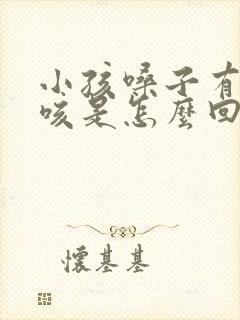 小孩嗓子有
咳是怎麼回
懷基基